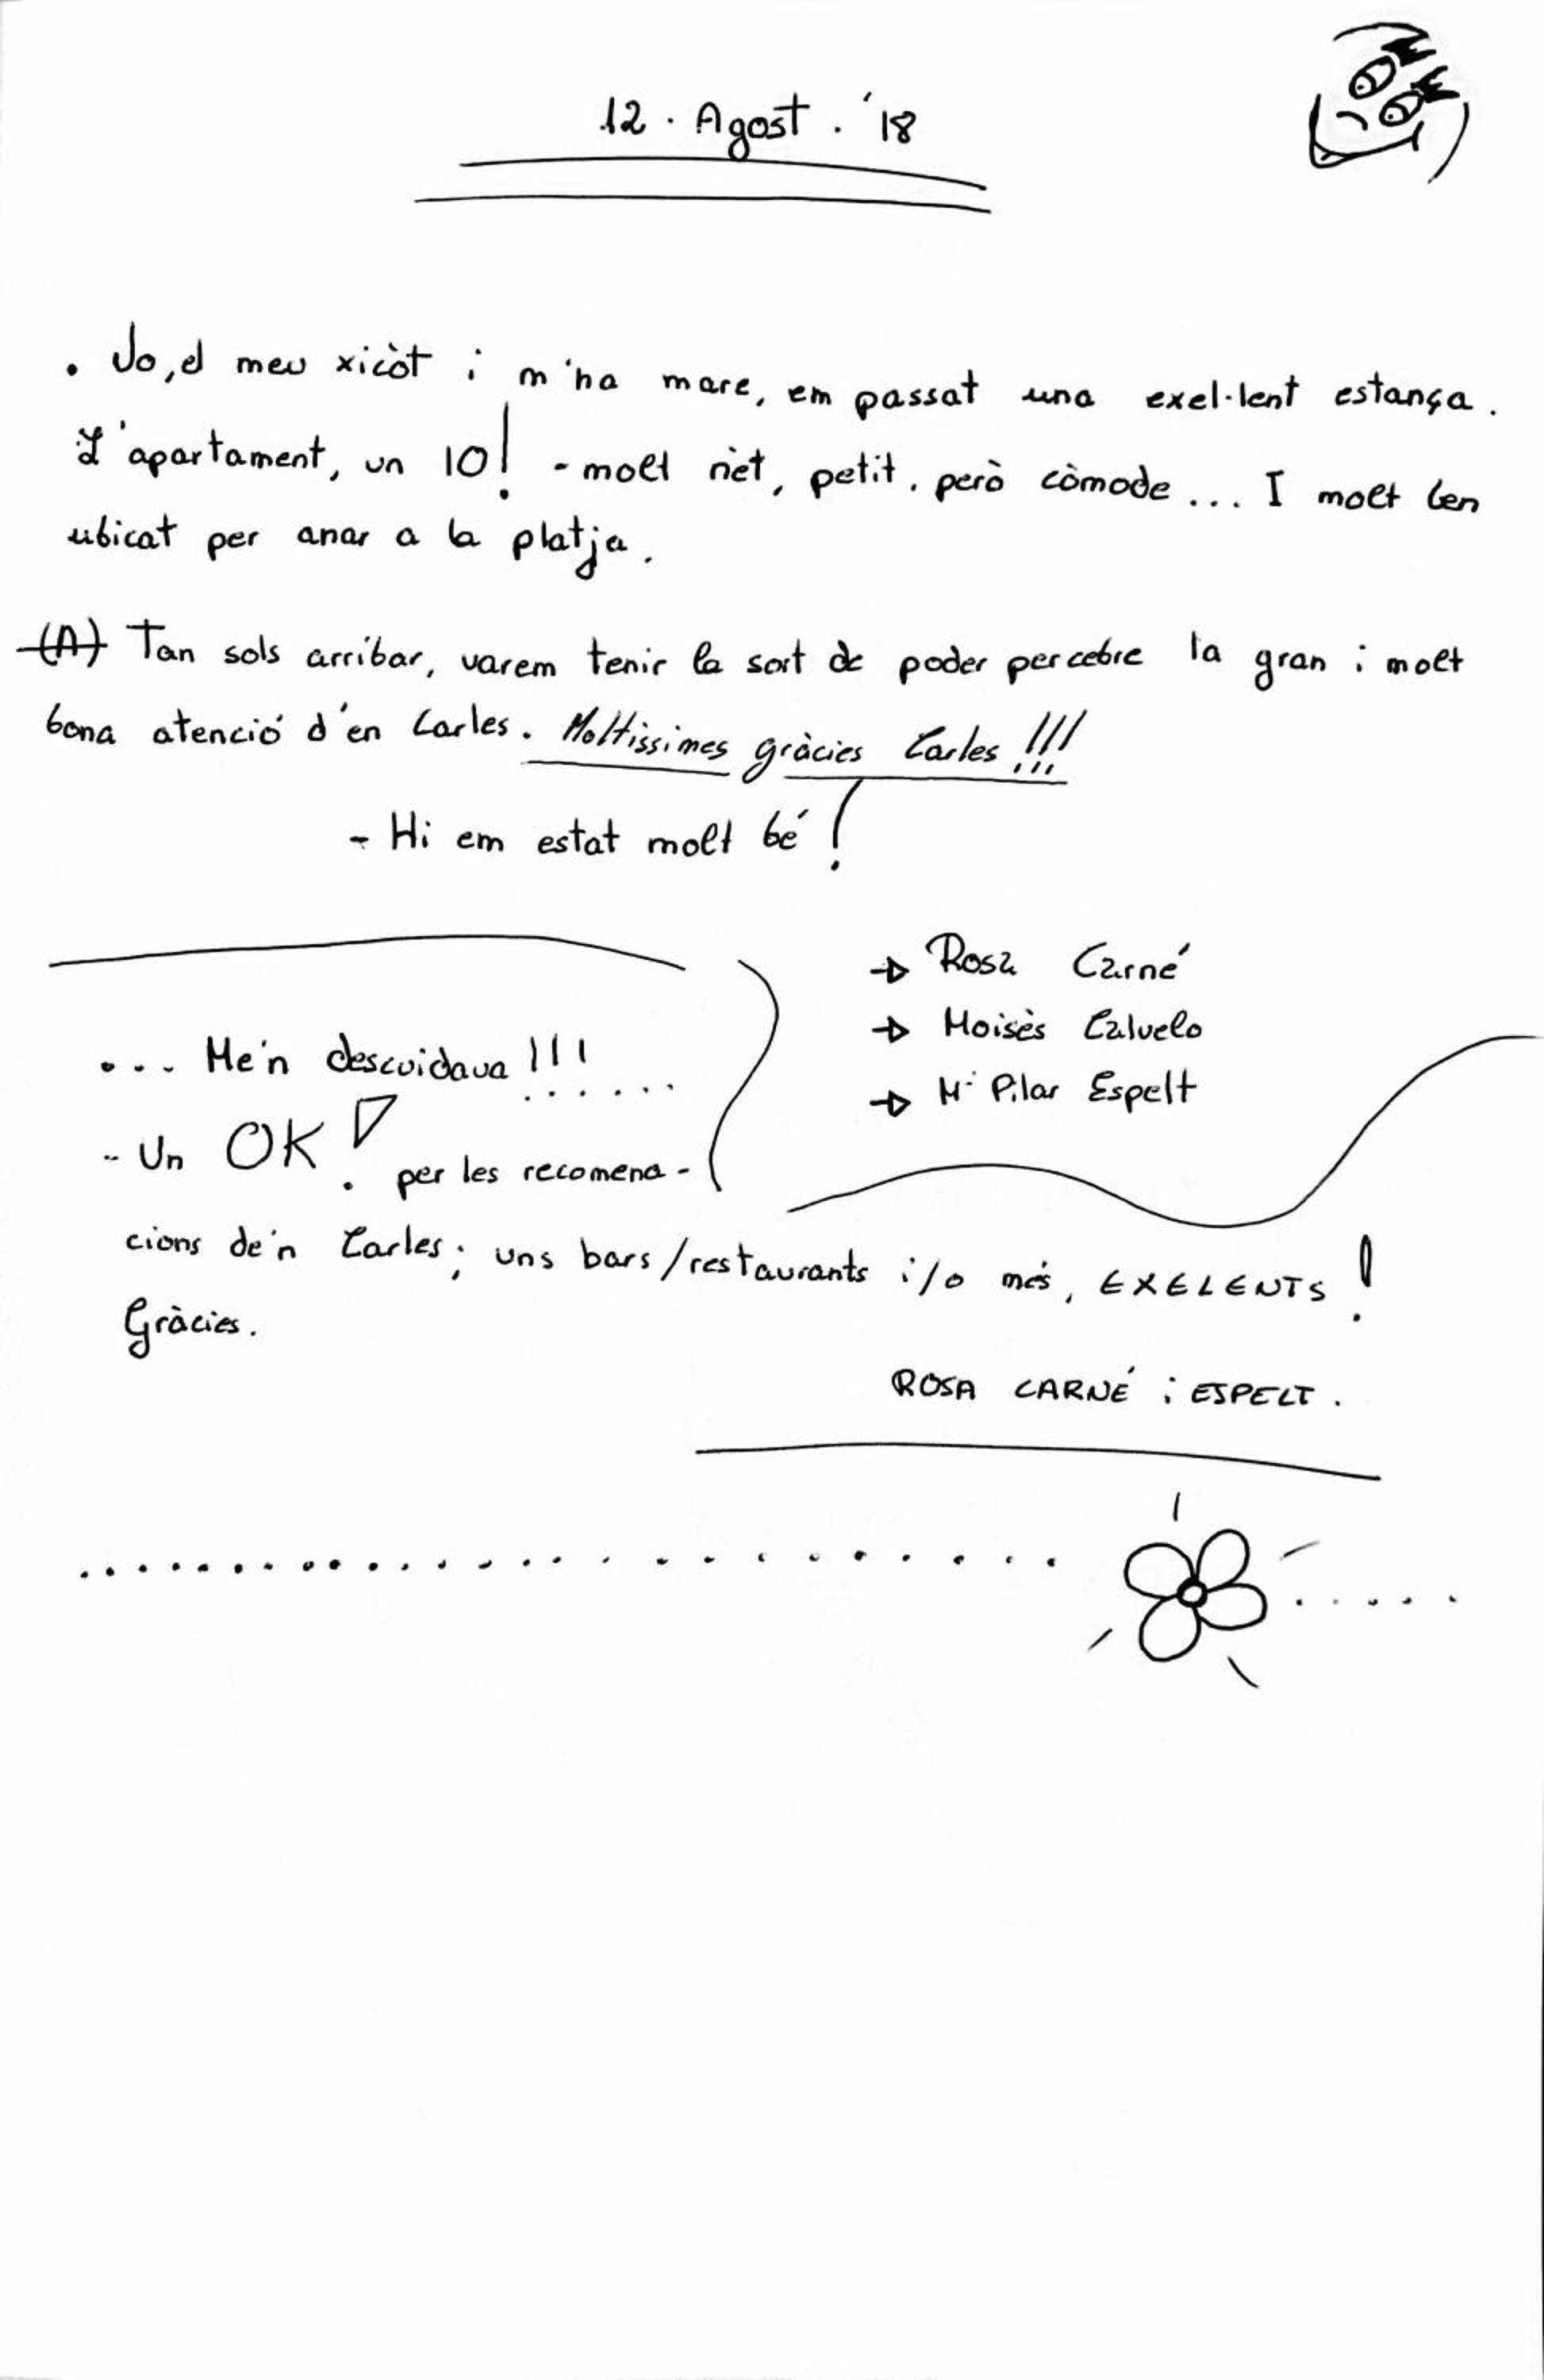 12 · Agost . '18
. Jo, el meu xicòt i m'ha mare, em passat una exel·lent estança.
L'apartament, un 10! - molt nèt, petit, però còmode ... I molt ben
ubicat per anar a la platja.
(A) Tan sols arribar, varem tenir la sort de poder percebre la gran i molt
bona atenció d'en Carles. Moltissimes gràcies Carles !!!
- Hi em estat molt bé !
→ Rosa Carné
→ Moisès Calvelo
→ Mª Pilar Espelt
... Me'n descuidava !!! ......
- Un OK! per les recomena-
cions de'n Carles; uns bars/restaurants i/o més, EXELENTS !
Gràcies.
ROSA CARNÉ i ESPELT.